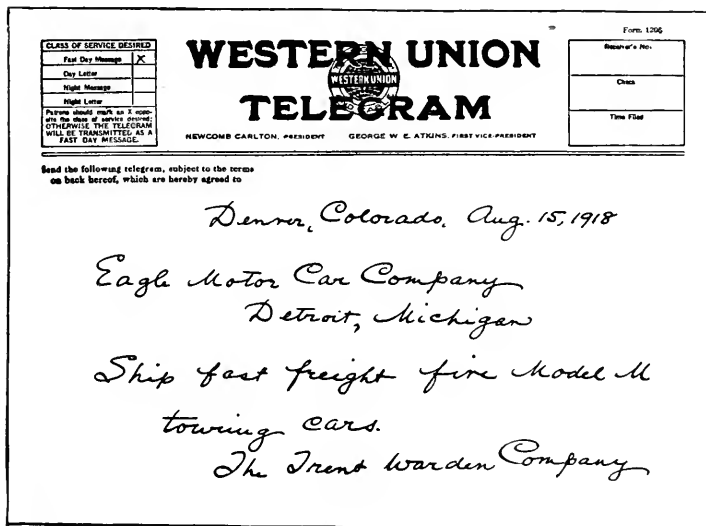 Form 1206
CLASS OF SERVICE DESIRED
Fast Day Message X
Day Letter
Night Message
Night Letter
Patrons should mark an X oppo-
site the class of service desired;
OTHERWISE THE TELEGRAM
WILL BE TRANSMITTED AS A
FAST DAY MESSAGE.
WESTERN UNION
WESTERN UNION
TELEGRAM
NEWCOMB CARLTON, PRESIDENT GEORGE W. E. ATKINS, FIRST VICE-PRESIDENT
Receiver's No.
Check
Time Filed
Send the following telegram, subject to the terms
on back hereof, which are hereby agreed to
Denver, Colorado, Aug. 15, 1918
Eagle Motor Car Company
Detroit, Michigan
Ship fast freight five Model M
touring cars.
The Trent Warden Company